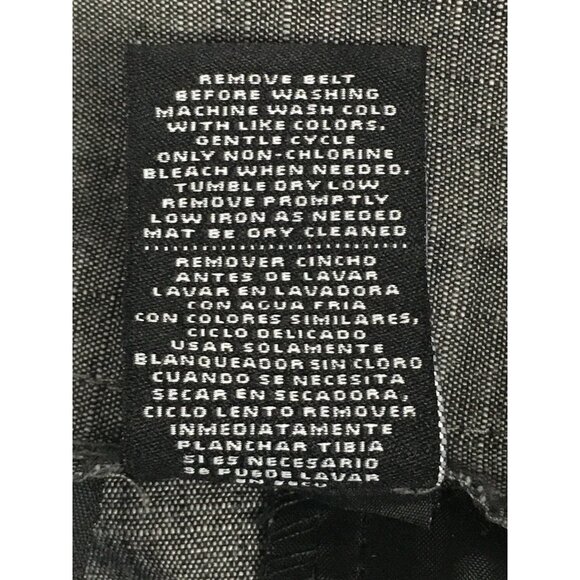 REMOVE BELT
BEFORE WASHING
MACHINE WASH COLD
WITH LIKE COLORS,
GENTLE CYCLE
ONLY NON-CHLORINE
BLEACH WHEN NEEDED.
TUMBLE DRY LOW
REMOVE PROMPTLY
LOW IRON AS NEEDED
MAT BE DRY CLEANED
REMOVER CINCHO
ANTES DE LAVAR
LAVAR EN LAVADORA
CON AGUA FRIA
CON COLORES SIMILARES,
CICLO DELICADO
USAR SOLAMENTE
BLANQUEADOR SIN CLORO
CUANDO SE NECESITA
SECAR EN SECADORA,
CICLO LENTO REMOVER
INMEDIATAMENTE
PLANCHAR TIBIA
SI ES NECESARIO
SE PUEDE LAVAR
EN SECO